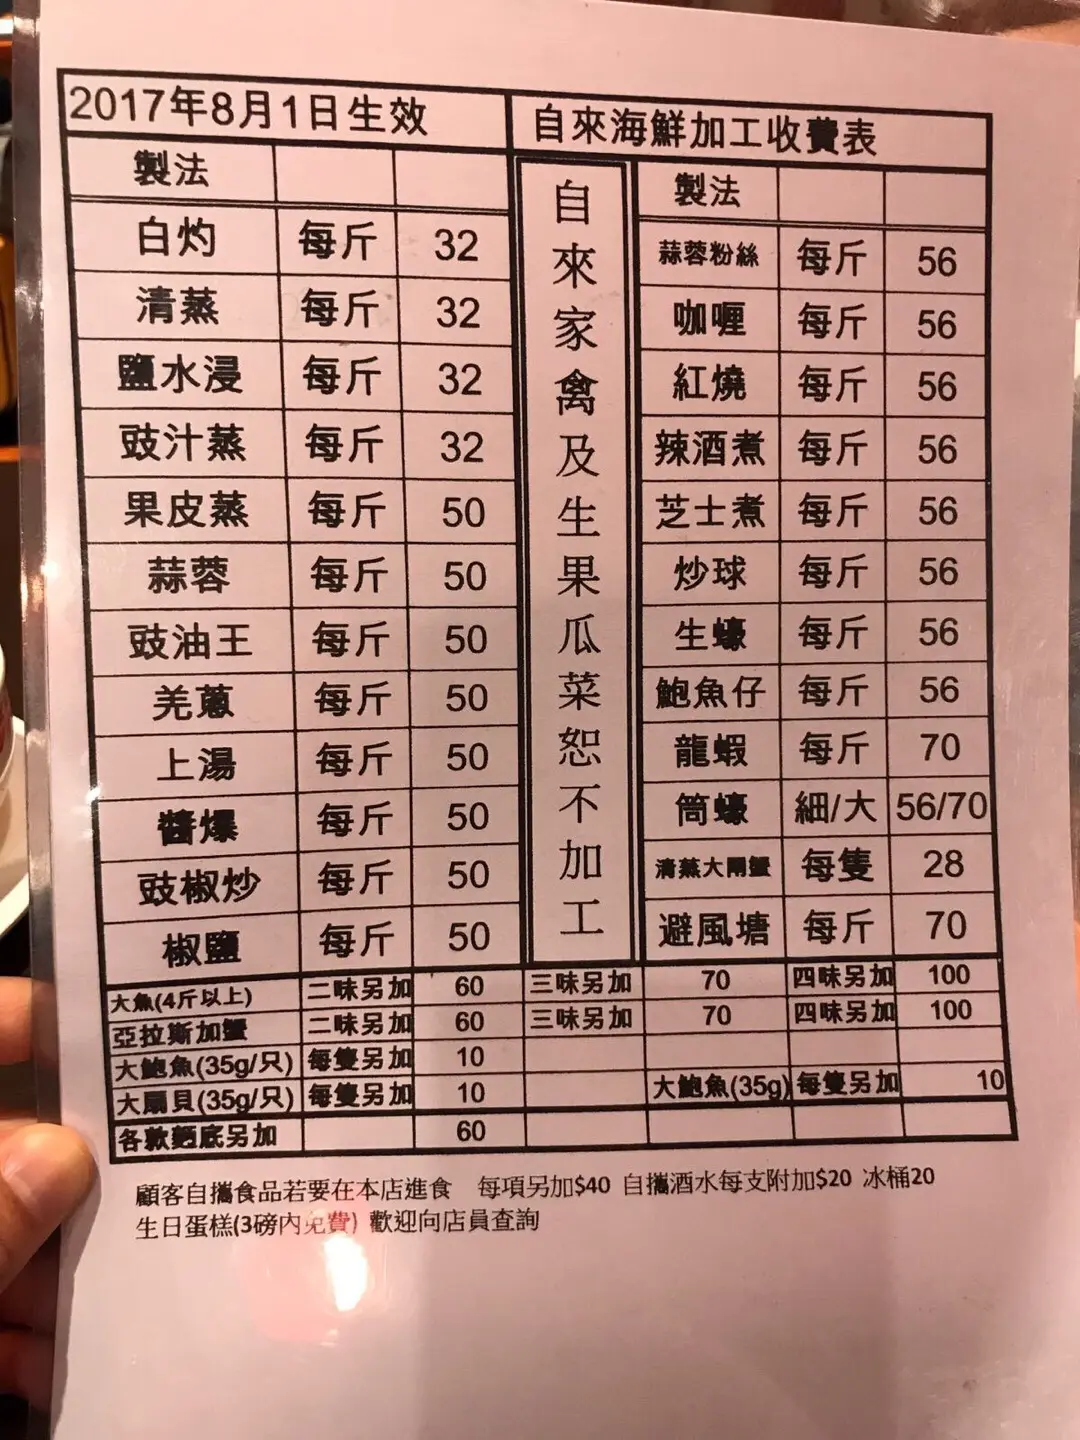 2017年8月1日生效 自來海鮮加工收費表
製法
白灼 每斤 32
清蒸 每斤 32
鹽水浸 每斤 32
豉汁蒸 每斤 32
果皮蒸 每斤 50
蒜蓉 每斤 50
豉油王 每斤 50
羌蔥 每斤 50
上湯 每斤 50
醬爆 每斤 50
豉椒炒 每斤 50
椒鹽 每斤 50
自來家禽及生果瓜菜恕不加工
製法
蒜蓉粉絲 每斤 56
咖喱 每斤 56
紅燒 每斤 56
辣酒煮 每斤 56
芝士煮 每斤 56
炒球 每斤 56
生蠔 每斤 56
鮑魚仔 每斤 56
龍蝦 每斤 70
筒蠔 細/大 56/70
清蒸大閘蟹 每隻 28
避風塘 每斤 70
大魚(4斤以上) 二味另加 60 三味另加 70 四味另加 100
亞拉斯加蟹 二味另加 60 三味另加 70 四味另加 100
大鮑魚(35g/只) 每隻另加 10
大扇貝(35g/只) 每隻另加 10 大鮑魚(35g) 每隻另加 10
各款麵底另加 60
顧客自攜食品若要在本店進食 每項另加$40 自攜酒水每支附加$20 冰桶20
生日蛋糕(3磅內免費) 歡迎向店員查詢